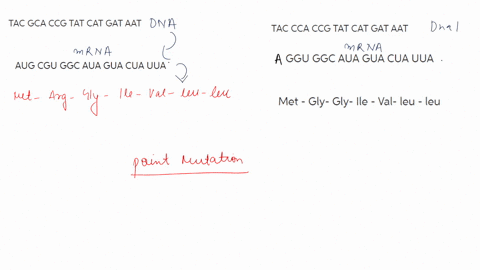 TAC GCA CCG TAT CAT GAT AAT DNA
mRNA
AUG CGU GGC AUA GUA CUA UUA
Met - Arg - Gly - Ile - Val - leu - leu
TAC CCA CCG TAT CAT GAT AAT Dna 1
mRNA
A GGU GGC AUA GUA CUA UUA .
Met - Gly- Gly- Ile - Val- leu - leu
point Mutation